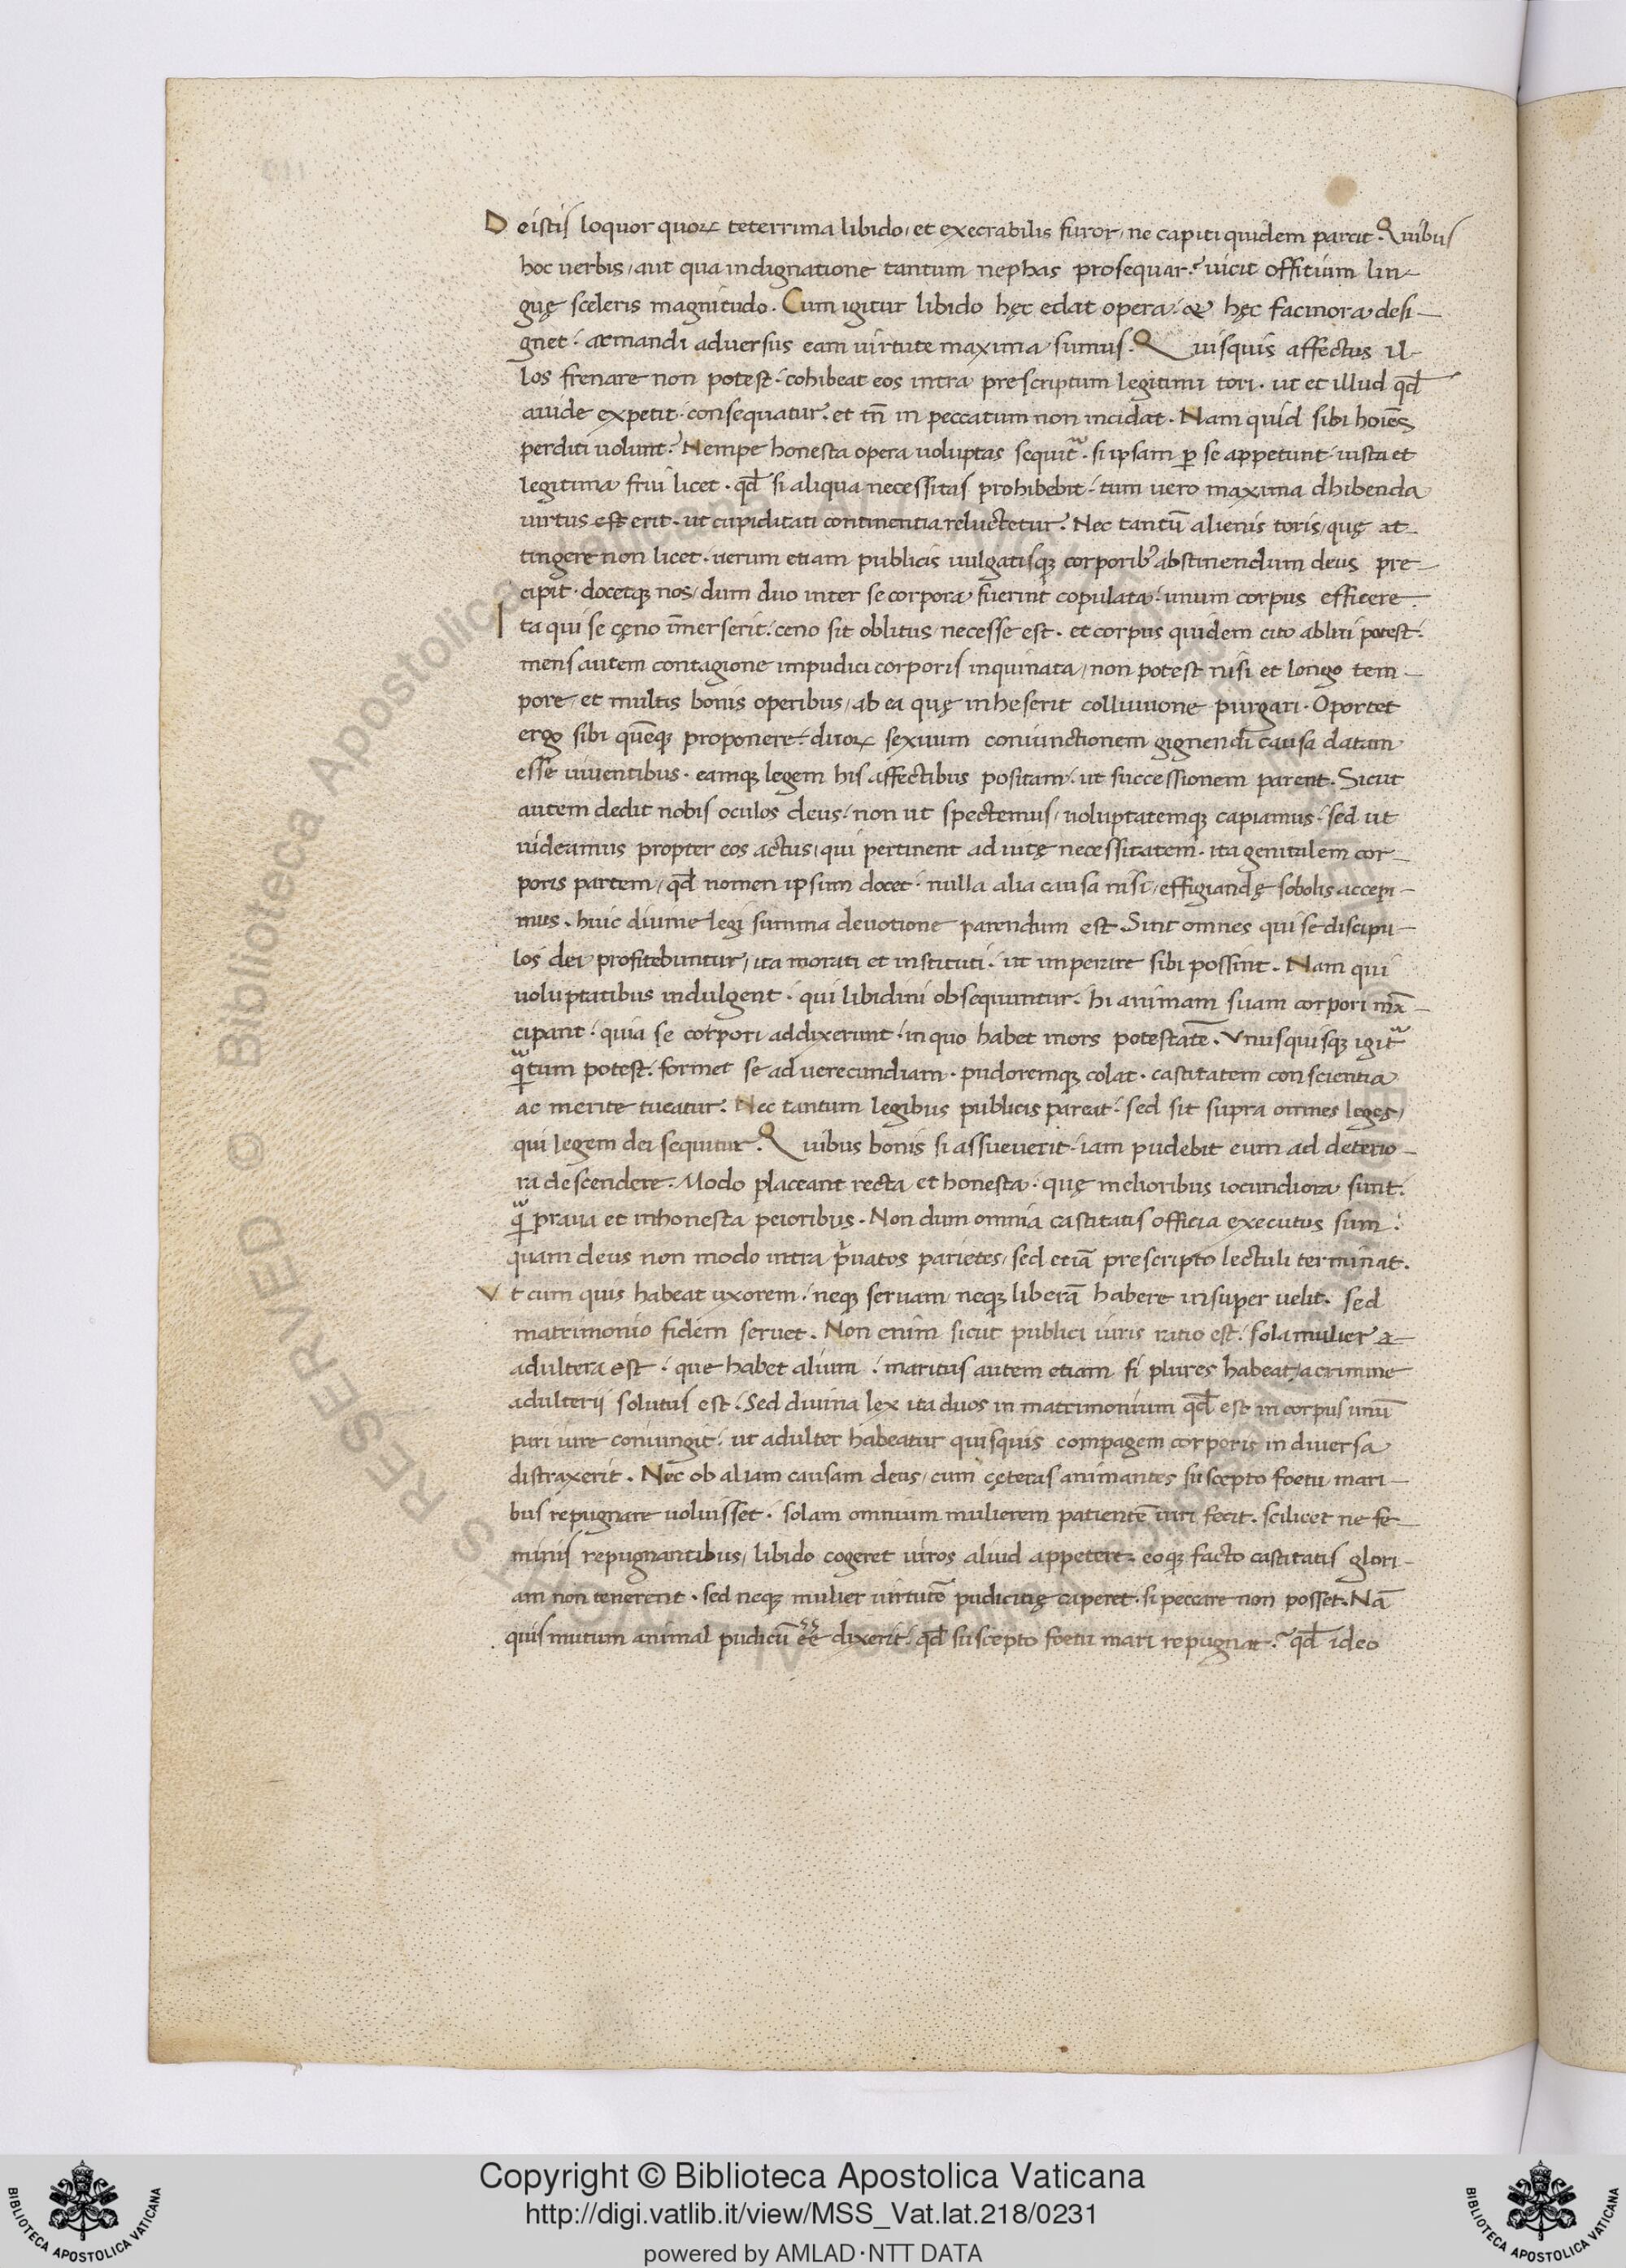 De istis loquor quoꝝ teterrima libido, et execrabilis furor, ne capiti quidem parcit. Quibus
hoc uerbis, aut qua indignatione tantum nephas prosequar? uicit offitium lin-
guę sceleris magnitudo. Cum igitur libido hęc edat opera, & hęc facinora desi-
gnet: armandi aduersus eam uirtute maxima sumus. Quisquis affectus il-
los frenare non potest. cohibeat eos intra prescriptum legitimi tori. ut et illud qđ
auide expetit. consequatur. et tn̄ in peccatum non incidat. Nam quid sibi hoīes
perditi uolunt? Nempe honesta opera uoluptas sequit᷑. si ipsam ꝑ se appetunt. iusta et
legitima frui licet. qđ si aliqua necessitas prohibebit. tum uero maxima dhibenda
uirtus est erit. ut cupiditati continentia reluctetur. Nec tantū alienis toris, quę at-
tingere non licet. uerum etiam publicis uulgatisqꝫ corporibꝰ abstinendum deus pre-
cipit. docetqꝫ nos, dum duo inter se corpora fuerint copulata. unum corpus efficere.
Ita qui se cęno īmerserit. ceno sit oblitus, necesse est. et corpus quidem cito ablui potest.
mens autem contagione impudici corporis inquinata, non potest nisi et longo tem-
pore, et multis bonis operibus, ab ea quę inheserit colluuione purgari. Oportet
ergo sibi quēqꝫ proponere. duoꝝ sexuum coniunctionem gignendi causa datam
esse uiuentibus. eamqꝫ legem his affectibus positam. ut successionem parent. Sicut
autem dedit nobis oculos deus, non ut spectemus, uoluptatemqꝫ capiamus. sed ut
uideamus propter eos actus, qui pertinent ad uitę necessitatem. ita genitalem cor-
poris partem, qđ nomen ipsum docet. nulla alia causa nisi, effigiandę sobolis accepi-
mus. huic diuine legi summa deuotione parendum est. Sint omnes qui se discipu-
los dei profitebuntur, ita morati et instituti. ut imperare sibi possint. Nam qui
uoluptatibus indulgent. qui libidini obsequuntur. hi animam suam corpori mā-
cipant. quia se corpori addixerunt. in quo habet mors potestatē. Vnusquisqꝫ igit᷑
qᷓtum potest. formet se ad uerecundiam. pudoremqꝫ colat. castitatem conscientia
ac mente tueatur. Nec tantum legibus publicis pareat. sed sit supra omnes leges,
qui legem dei sequitur. Quibus bonis si assueuerit. iam pudebit eum ad deterio-
ra descendere. Modo placeant recta et honesta. quę melioribus iocundiora sunt.
qᷓ praua et inhonesta peioribus. Non dum omnia castitatis officia executus sum.
quam deus non modo intra p̓uatos parietes, sed etiā prescripto lectuli terminat.
Vt cum quis habeat uxorem. neqꝫ seruam neqꝫ liberā habere insuper uelit. sed
matrimonio fidem seruet. Non enim sicut publici iuris ratio est. sola mulier a-
adultera est. que habet alium. maritus autem etiam si plures habeat, a crimine
adulterij solutus est. Sed diuina lex ita duos in matrimonium qđ est in corpus unū
pari iure coniungit. ut adulter habeatur quisquis compagem corporis in diuersa
distraxerit. Nec ob aliam causam deus, cum cęteras animantes suscepto foetu mari-
bus repugnare uoluisset. solam omnium mulierem patientē uiri fecit. scilicet ne fe-
minis repugnantibus, libido cogeret uiros aliud appetere. eoqꝫ facto castitatis glori-
am non tenerent. sed neqꝫ mulier uirtutē pudicitię caperet. si peccare non posset. Nā
quis mutum animal pudicū eē dixerit. qđ suscepto foetu mari repugnat? qđ ideo
Copyright © Biblioteca Apostolica Vaticana
http://digi.vatlib.it/view/MSS_Vat.lat.218/0231
powered by AMLAD·NTT DATA
BIBLIOTECA APOSTOLICA VATICANA
BIBLIOTECA APOSTOLICA VATICANA